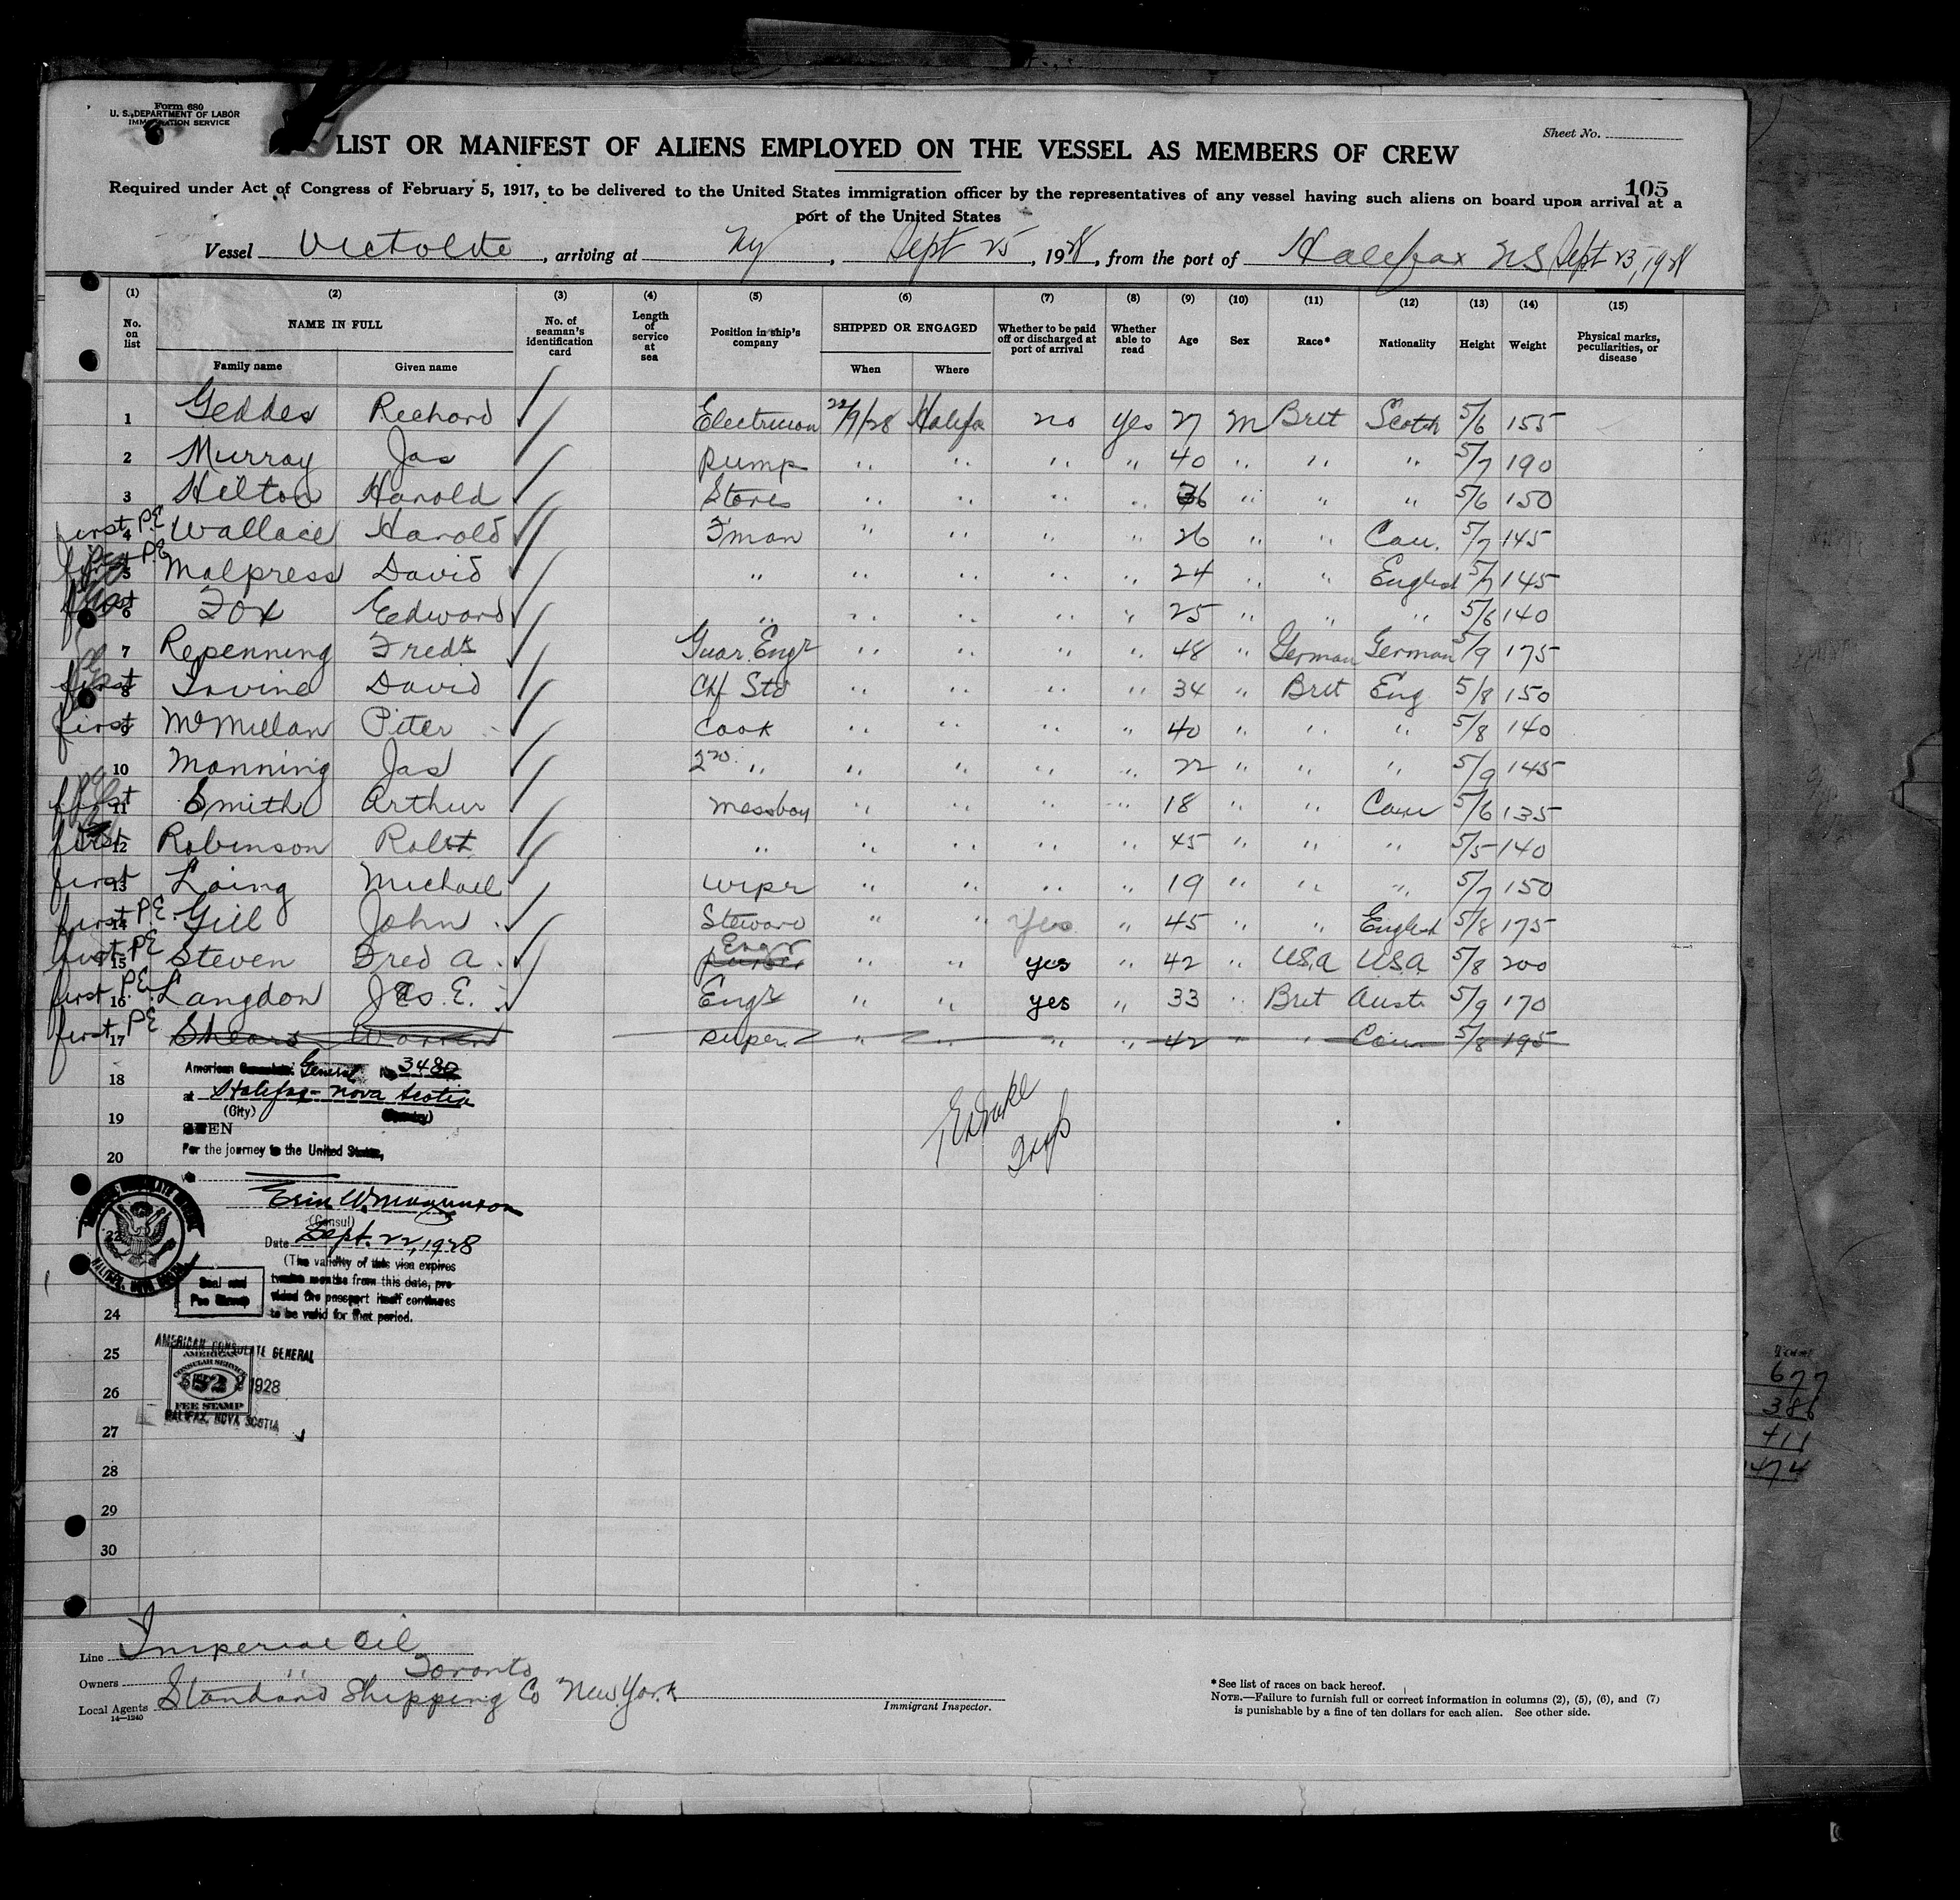 Form 680
U. S. DEPARTMENT OF LABOR
IMMIGRATION SERVICE
Sheet No.
LIST OR MANIFEST OF ALIENS EMPLOYED ON THE VESSEL AS MEMBERS OF CREW
105
Required under Act of Congress of February 5, 1917, to be delivered to the United States immigration officer by the representatives of any vessel having such aliens on board upon arrival at a
port of the United States
Vessel Victolite, arriving at Ny, Sept 25, 1928, from the port of Halifax NS Sept 23, 1928
(1) (2) (3) (4) (5) (6) (7) (8) (9) (10) (11) (12) (13) (14) (15)
No. on list NAME IN FULL No. of seaman's identification card Length of service at sea Position in ship's company SHIPPED OR ENGAGED Whether to be paid off or discharged at port of arrival Whether able to read Age Sex Race* Nationality Height Weight Physical marks, peculiarities, or disease
Family name Given name When Where
1 Geddes Richard Electrician 22/9/28 Halifa no yes 27 M Brit Scotch 5/6 155
2 Murray Jas pump " " " " 40 " " " 5/7 190
3 Hilton Harold Stores " " " " 36 " " " 5/6 150
first P.E 4 Wallace Harold F'man " " " " 26 " " Can. 5/7 145
first P.E 5 Malpress David " " " " " 24 " " English 5/7 145
first 6 Fox Edward " " " " " 25 " " " 5/6 140
7 Repenning Fredk Guar. Engr " " " " 48 " German German 5/9 175
first 8 Irvine David Chf Std " " " " 34 " Brit Eng 5/8 150
first 9 McMillan Piter Cook " " " " 40 " " " 5/8 140
10 Manning Jas 2nd " " " " " 22 " " " 5/9 145
first 11 Smith Arthur messboy " " " " 18 " " Can 5/6 135
first 12 Robinson Robt " " " " " 45 " " " 5/5 140
first 13 Laing Michael wiper " " " " 19 " " " 5/7 150
first P.E. 14 Gill John Steward " " yes " 45 " " English 5/8 175
first P.E 15 Steven Fred A. Engr " " yes " 42 " U.S.A U.S.A. 5/8 200
first P.E. 16 Langdon Jas. E. Engr " " yes " 33 " Brit Aust 5/9 170
first P.E 17 Shears Warren super. " " " " 42 " " Can 5/8 195
American General No 3480
18
at Halifax - Nova Scotia
(City)
19
SEEN
For the journey to the United States,
20
E Drake
(Consul)
22
Date Sept. 22, 1928
(The validity of this visa expires
twelve months from this date, pro-
vided the passport itself continues
to be valid for that period.
Seal and
Fee Stamp
24
25
AMERICAN CONSULATE GENERAL
AMERICAN
CONSULAR SERVICE
26
1928
FEE STAMP
HALIFAX, NOVA SCOTIA
27
28
29
30
677
386
411
474
Line Imperial Oil
Owners " Toronto
Local Agents Standard Shipping Co New York
14—1240
Immigrant Inspector.
*See list of races on back hereof.
NOTE.—Failure to furnish full or correct information in columns (2), (5), (6), and (7)
is punishable by a fine of ten dollars for each alien. See other side.